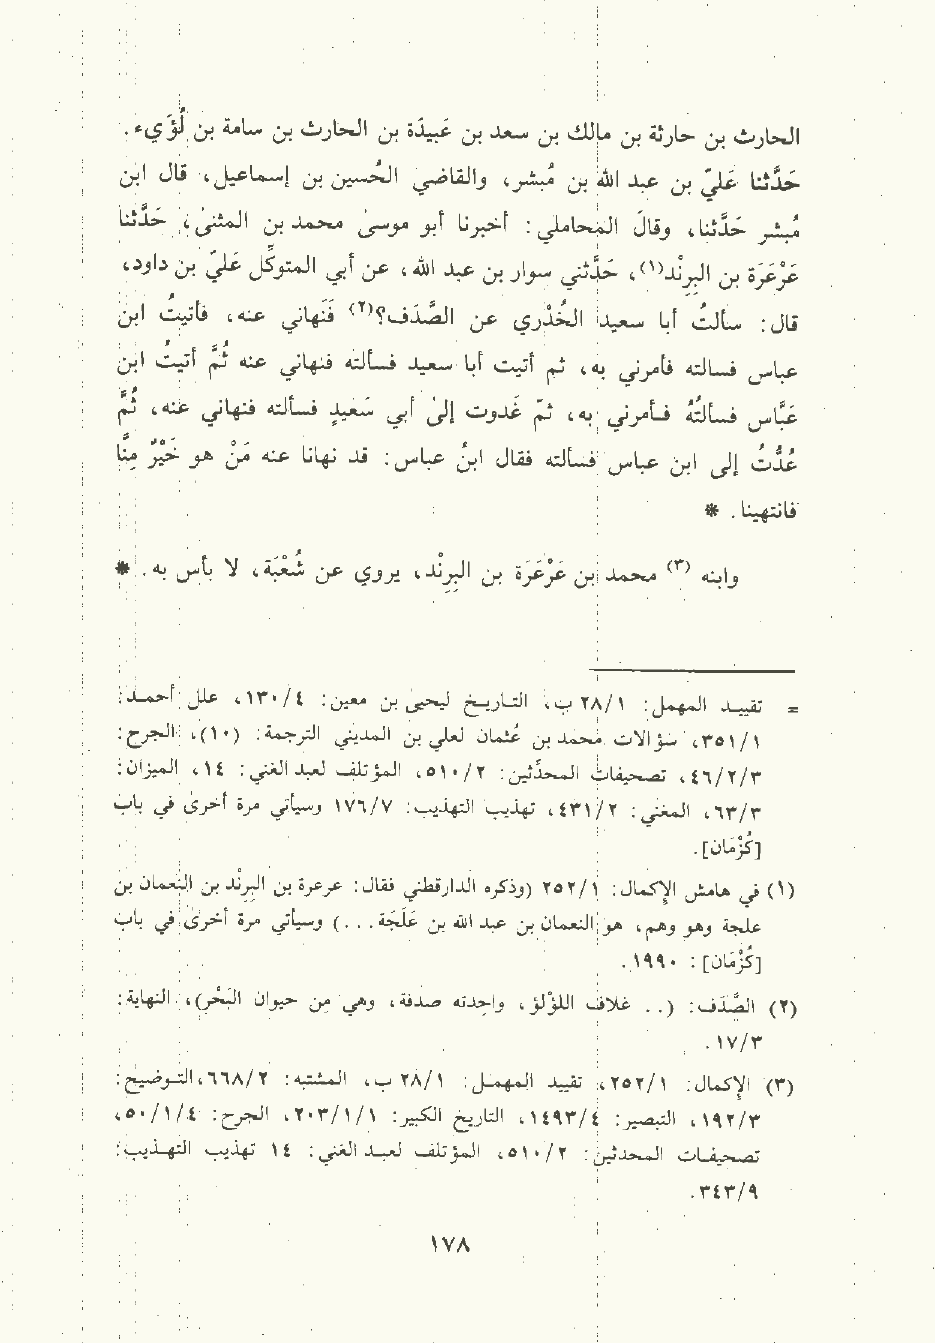 الحارث بن حارثة بن مالك بن سعد بن عَبيدَة بن الحارث بن سامة بن لُؤَيء.
حَدَّثنا عَليّ بن عبد الله بن مُبشر، والقاضي الحُسين بن إسماعيل، قال ابن
مُبشر حَدَّثنا، وقالَ المحاملي: أخبرنا أبو موسىٰ محمد بن المثنىٰ، حَدَّثنا
عَرْعَرَة بن البِرِنْد(١)، حَدَّثني سوار بن عبد الله، عن أبي المتوكِّل عَليّ بن داود،
قال: سألتُ أبا سعيد الخُدْري عن الصَّدَف؟(٢) فَنَهاني عنه، فأتيتُ ابن
عباس فسالته فأمرني به، ثم أتيت أبا سعيد فسألته فنهاني عنه ثُمَّ أتيتُ ابن
عَبَّاس فسألتُهُ فأمرني به، ثمّ غَدوت إلىٰ أبي سَعيدٍ فسألته فنهاني عنه، ثُمَّ
عُدُّتُ إلى ابن عباس فسألته فقال ابنُ عباس: قد نهانا عنه مَنْ هو خَيْرٌ مِنَّا
فانتهينا. *
وابنه (٣) محمد بن عَرْعَرَة بن البِرِنْد، يروي عن شُعْبَة، لا بأس به. *
= تقييد المهمل: ٢٨/١ ب، التاريخ ليحيىٰ بن معين: ١٣٠/٤، علل أحمد:
٣٥١/١، سؤالات محمد بن عُثمان لعلي بن المديني الترجمة: (١٠)، الجرح:
٤٦/٢/٣، تصحيفات المحدِّثين: ٥١٠/٢، المؤتلف لعبد الغني: ١٤، الميزان:
٦٣/٣، المغني: ٤٣١/٢، تهذيب التهذيب: ١٧٦/٧ وسيأتي مرة أخرىٰ في باب
[كُزْمَان].
(١) في هامش الإكمال: ٢٥٢/١ (وذكره الدارقطني فقال: عرعرة بن البرِنْد بن النعمان بن
علجة وهو وهم، هو النعمان بن عبد الله بن عَلَجَة...) وسيأتي مرة أخرىٰ في باب
[كُزْمَان]: ١٩٩٠.
(٢) الصَّدَف: (.. غلاف اللؤلؤ، واحِدته صدفة، وهي من حيوان البَحْر)، النهاية:
١٧/٣.
(٣) الإكمال: ٢٥٢/١، تقييد المهمل: ٢٨/١ ب، المشتبه: ٦٦٨/٢، التوضيح:
١٩٢/٣، التبصير: ١٤٩٣/٤، التاريخ الكبير: ٢٠٣/١/١، الجرح: ٥٠/١/٤،
تصحيفات المحدثين: ٥١٠/٢، المؤتلف لعبد الغني: ١٤ تهذيب التهذيب:
٣٤٣/٩.
١٧٨